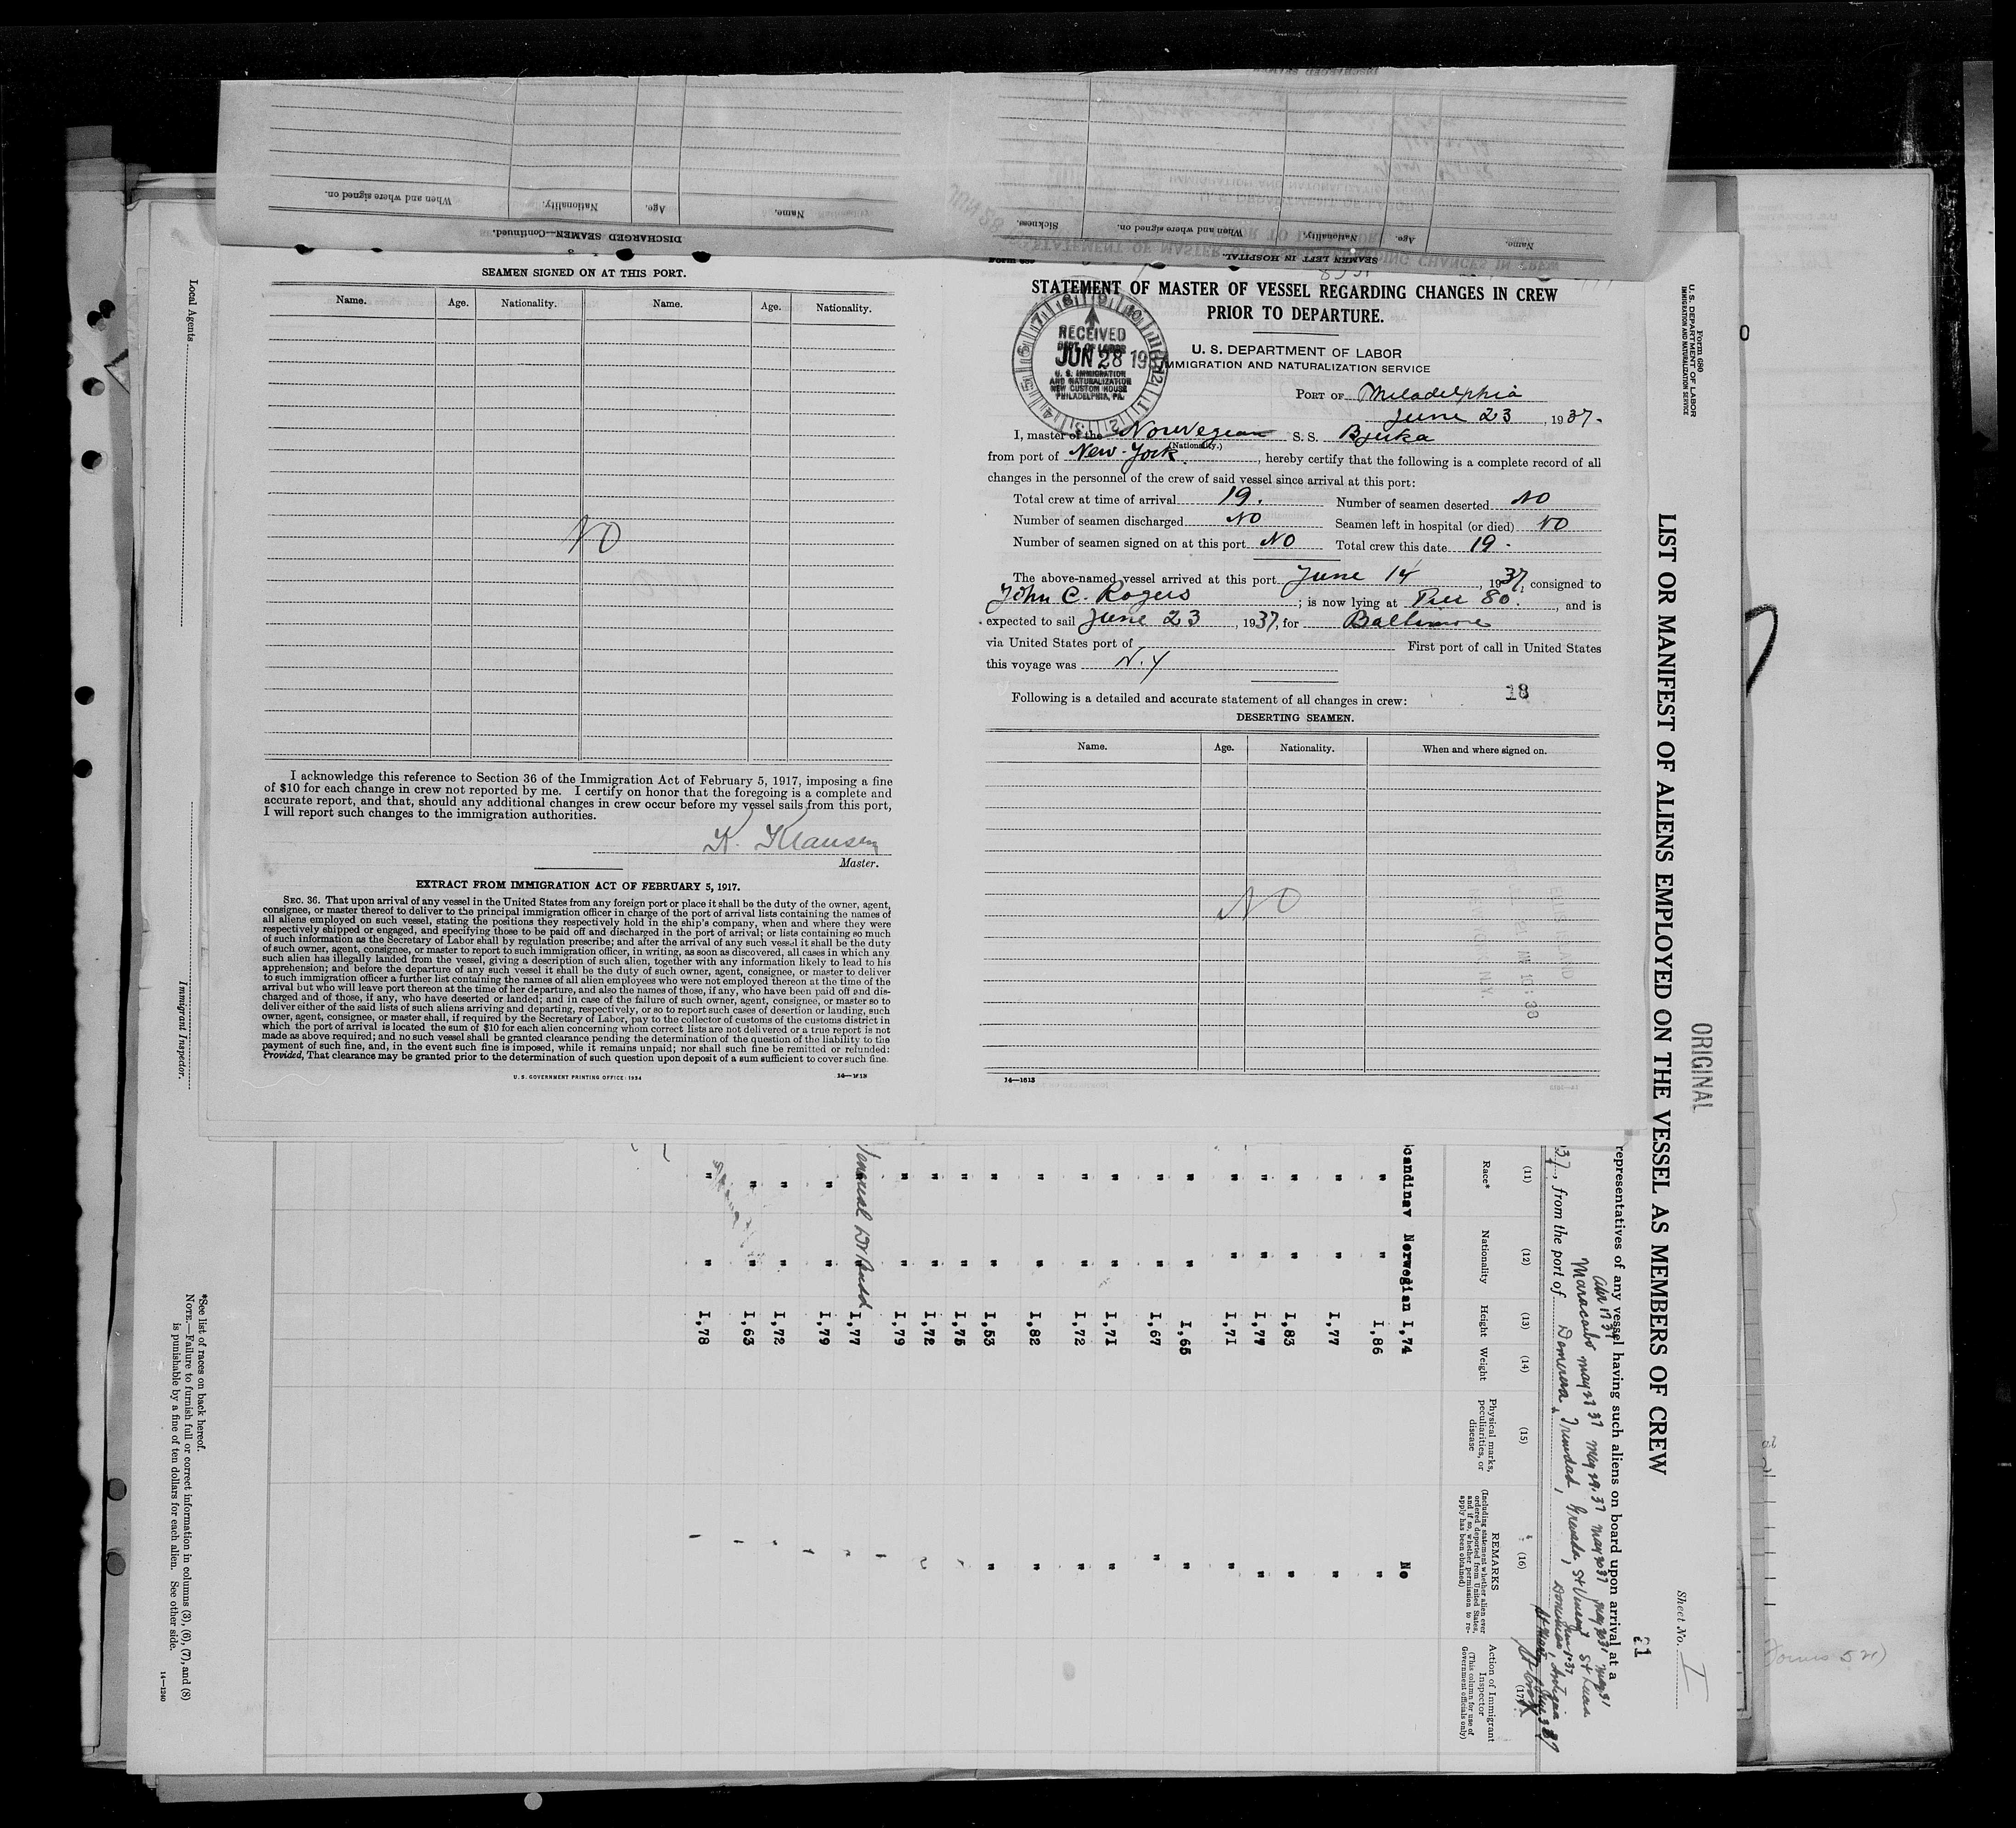 DISCHARGED SEAMEN—Continued.
Name. Age. Nationality. When and where signed on.
SEAMEN LEFT IN HOSPITAL.
Name. Age. Nationality. When and where signed on. Sickness.
SEAMEN SIGNED ON AT THIS PORT.
Name. Age. Nationality. Name. Age. Nationality.
NO
I acknowledge this reference to Section 36 of the Immigration Act of February 5, 1917, imposing a fine
of $10 for each change in crew not reported by me. I certify on honor that the foregoing is a complete and
accurate report, and that, should any additional changes in crew occur before my vessel sails from this port,
I will report such changes to the immigration authorities.
K. Klausen
Master.
EXTRACT FROM IMMIGRATION ACT OF FEBRUARY 5, 1917.
SEC. 36. That upon arrival of any vessel in the United States from any foreign port or place it shall be the duty of the owner, agent,
consignee, or master thereof to deliver to the principal immigration officer in charge of the port of arrival lists containing the names of
all aliens employed on such vessel, stating the positions they respectively hold in the ship's company, when and where they were
respectively shipped or engaged, and specifying those to be paid off and discharged in the port of arrival; or lists containing so much
of such information as the Secretary of Labor shall by regulation prescribe; and after the arrival of any such vessel it shall be the duty
of such owner, agent, consignee, or master to report to such immigration officer, in writing, as soon as discovered, all cases in which any
such alien has illegally landed from the vessel, giving a description of such alien, together with any information likely to lead to his
apprehension; and before the departure of any such vessel it shall be the duty of such owner, agent, consignee, or master to deliver
to such immigration officer a further list containing the names of all alien employees who were not employed thereon at the time of the
arrival but who will leave port thereon at the time of her departure, and also the names of those, if any, who have been paid off and dis-
charged and of those, if any, who have deserted or landed; and in case of the failure of such owner, agent, consignee, or master so to
deliver either of the said lists of such aliens arriving and departing, respectively, or so to report such cases of desertion or landing, such
owner, agent, consignee, or master shall, if required by the Secretary of Labor, pay to the collector of customs of the customs district in
which the port of arrival is located the sum of $10 for each alien concerning whom correct lists are not delivered or a true report is not
made as above required; and no such vessel shall be granted clearance pending the determination of the question of the liability to the
payment of such fine, and, in the event such fine is imposed, while it remains unpaid; nor shall such fine be remitted or refunded:
Provided, That clearance may be granted prior to the determination of such question upon deposit of a sum sufficient to cover such fine.
U. S. GOVERNMENT PRINTING OFFICE: 1934 14—1613
STATEMENT OF MASTER OF VESSEL REGARDING CHANGES IN CREW
PRIOR TO DEPARTURE.
U. S. DEPARTMENT OF LABOR
IMMIGRATION AND NATURALIZATION SERVICE
RECEIVED
DEPT. OF LABOR
JUN 28 1937
U. S. IMMIGRATION
AND NATURALIZATION
NEW CUSTOM HOUSE
PHILADELPHIA, PA.
PORT OF Philadelphia
June 23, 1937.
I, master of the Norwegian S. S. Bjerka
(Nationality.)
from port of New-York, hereby certify that the following is a complete record of all
changes in the personnel of the crew of said vessel since arrival at this port:
Total crew at time of arrival 19. Number of seamen deserted NO
Number of seamen discharged NO Seamen left in hospital (or died) NO
Number of seamen signed on at this port NO Total crew this date 19.
The above-named vessel arrived at this port June 14, 1937, consigned to
John C. Rogers; is now lying at Pier 80., and is
expected to sail June 23, 1937, for Baltimore
via United States port of First port of call in United States
this voyage was N.Y
Following is a detailed and accurate statement of all changes in crew: 18
DESERTING SEAMEN.
Name. Age. Nationality. When and where signed on.
NO
14—1613
Form 680
U. S. DEPARTMENT OF LABOR
IMMIGRATION AND NATURALIZATION SERVICE
ORIGINAL
Sheet No. I
LIST OR MANIFEST OF ALIENS EMPLOYED ON THE VESSEL AS MEMBERS OF CREW
21
representatives of any vessel having such aliens on board upon arrival at a
Maracaibo May 27 37 May 29.37 May 30 37 May 31
37, from the port of Demerara, Trinidad, Grenada, St Vincent St Lucia
Dominica, Antigua
St Croix
(11) (12) (13) (14) (15) (16) (17)
Race* Nationality Height Weight Physical marks, peculiarities, or disease
REMARKS
(Including statement whether alien ever ordered deported from United States, and if so, whether permission to reapply has been obtained)
Action of Immigrant Inspector
(This column for use of Government officials only)
Scandinav Norwegian 1,74 No
" " 1,86 "
" " 1,77 "
" " 1,83 "
" " 1,77 "
" " 1,71 "
" " 1,65 "
" " 1,67 "
" " 1,71 "
" " 1,72 "
" " 1,82 "
" " 1,53 "
" " 1,75
" " 1,72
" " 1,79
1,77
" " 1,79
" " 1,72
" " 1,63
" " 1,78
*See list of races on back hereof.
NOTE.—Failure to furnish full or correct information in columns (3), (6), (7), and (8)
is punishable by a fine of ten dollars for each alien. See other side.
14—1240
Local Agents
Immigrant Inspector.